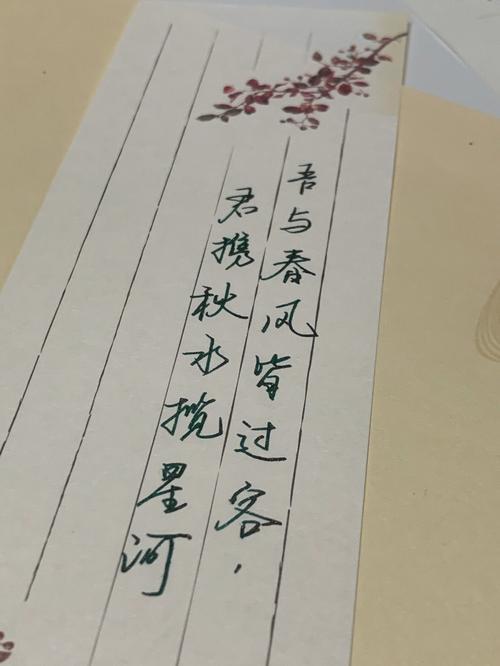 吾与春风皆过客，
君携秋水揽星河